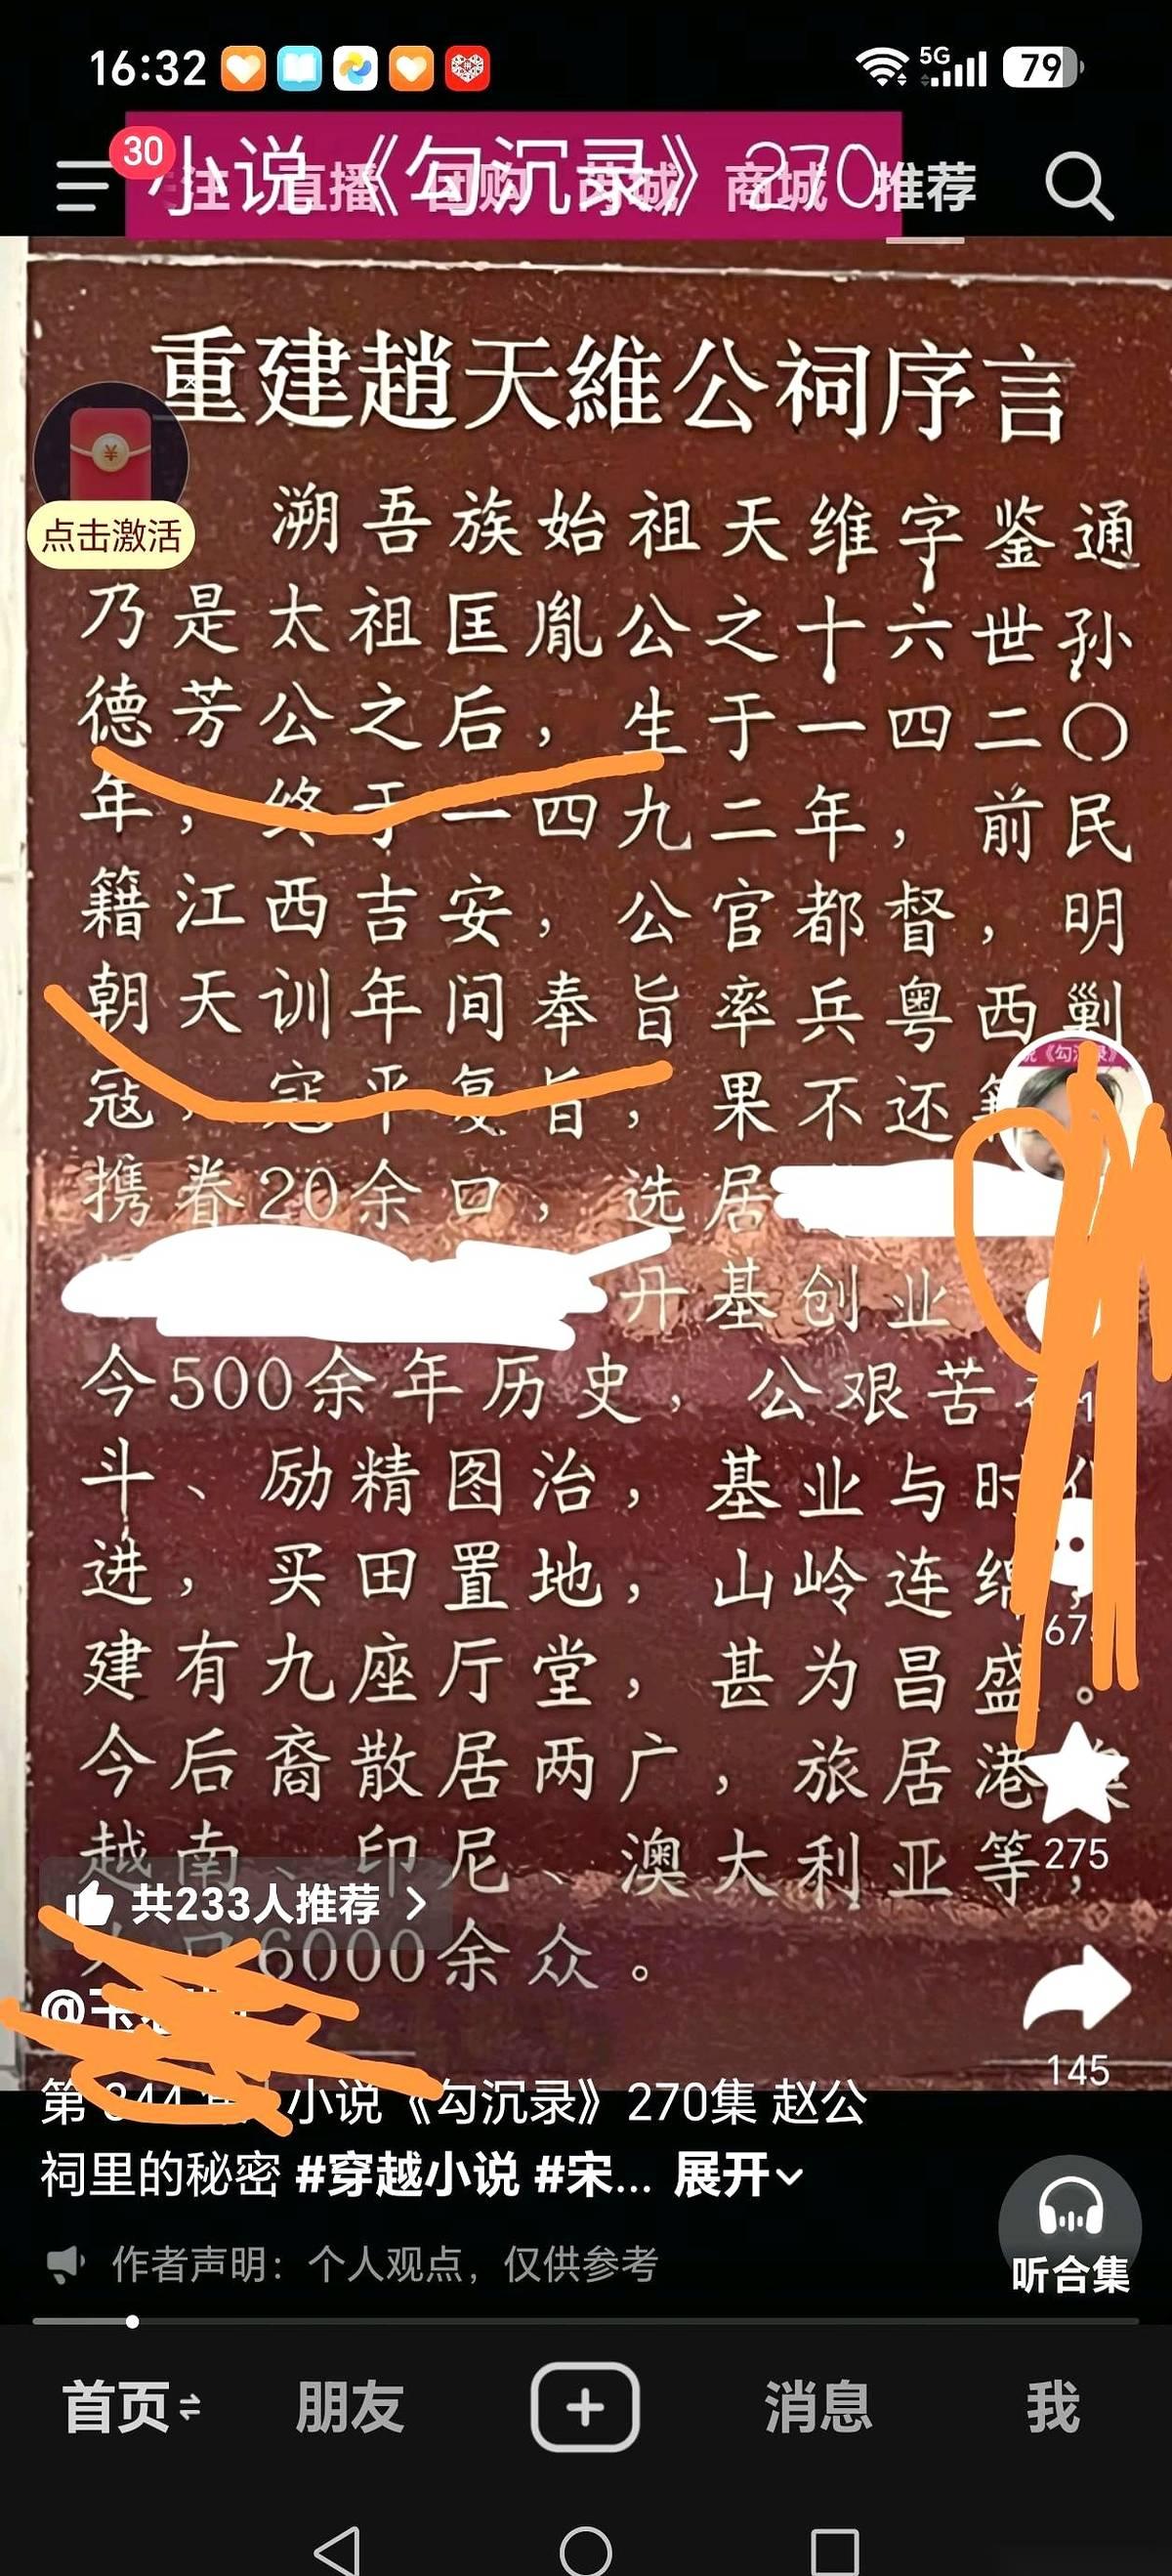 16:32
5G
79
30
小说《勾沉录》270
直播 团购 商城 推荐
重建趙天維公祠序言
点击激活
溯吾族始祖天维字鉴通
乃是太祖匡胤公之十六世孙
德芳公之后，生于一四二〇
年，终于一四九二年，前民
籍江西吉安，公官都督，明
朝天训年间奉旨率兵粤西剿
寇，寇平复旨，果不还
携眷20余口，选居
开基创业
今500余年历史，公艰苦
斗、励精图治，基业与时
进，买田置地，山岭连绵，
建有九座厅堂，甚为昌盛。
今后裔散居两广，旅居港
越南、印尼、澳大利亚等，
6000余众。
275
共233人推荐
145
小说《勾沉录》270集 赵公
祠里的秘密 #穿越小说 #宋... 展开
作者声明：个人观点，仅供参考
听合集
首页 朋友 消息 我